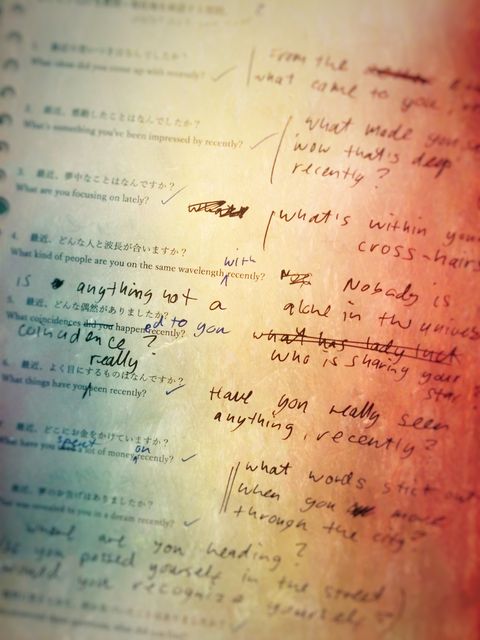 From the
what came to you,
What ideas did you come up with recently?
what made you
2. 最近、感動したことはなんでしたか?
wow that's deep
What's something you've been impressed by recently?
recently?
3. 最近、夢中なことはなんですか?
What are you focusing on lately?
what's within your
cross-hairs
4. 最近、どんな人と波長が合いますか?
with
What kind of people are you on the same wavelength recently?
Nobody is
is anything not a
alone in the universe
5. 最近、どんな偶然がありましたか?
What coincidences did you happen recently?
ed to you
coincidence?
what has lady luck
who is sharing your
star
really
6. 最近、よく目にするものはなんですか?
What things have you seen recently?
Have you really seen
anything, recently?
最近、どこにお金をかけていますか?
spent
on
What have you a lot of money recently?
what words stick out
when you move
through the city?
最近、夢のお告げはありましたか?
was revealed to you in a dream recently?
where are you heading?
you passed yourself in the street
would you recognize yourself?